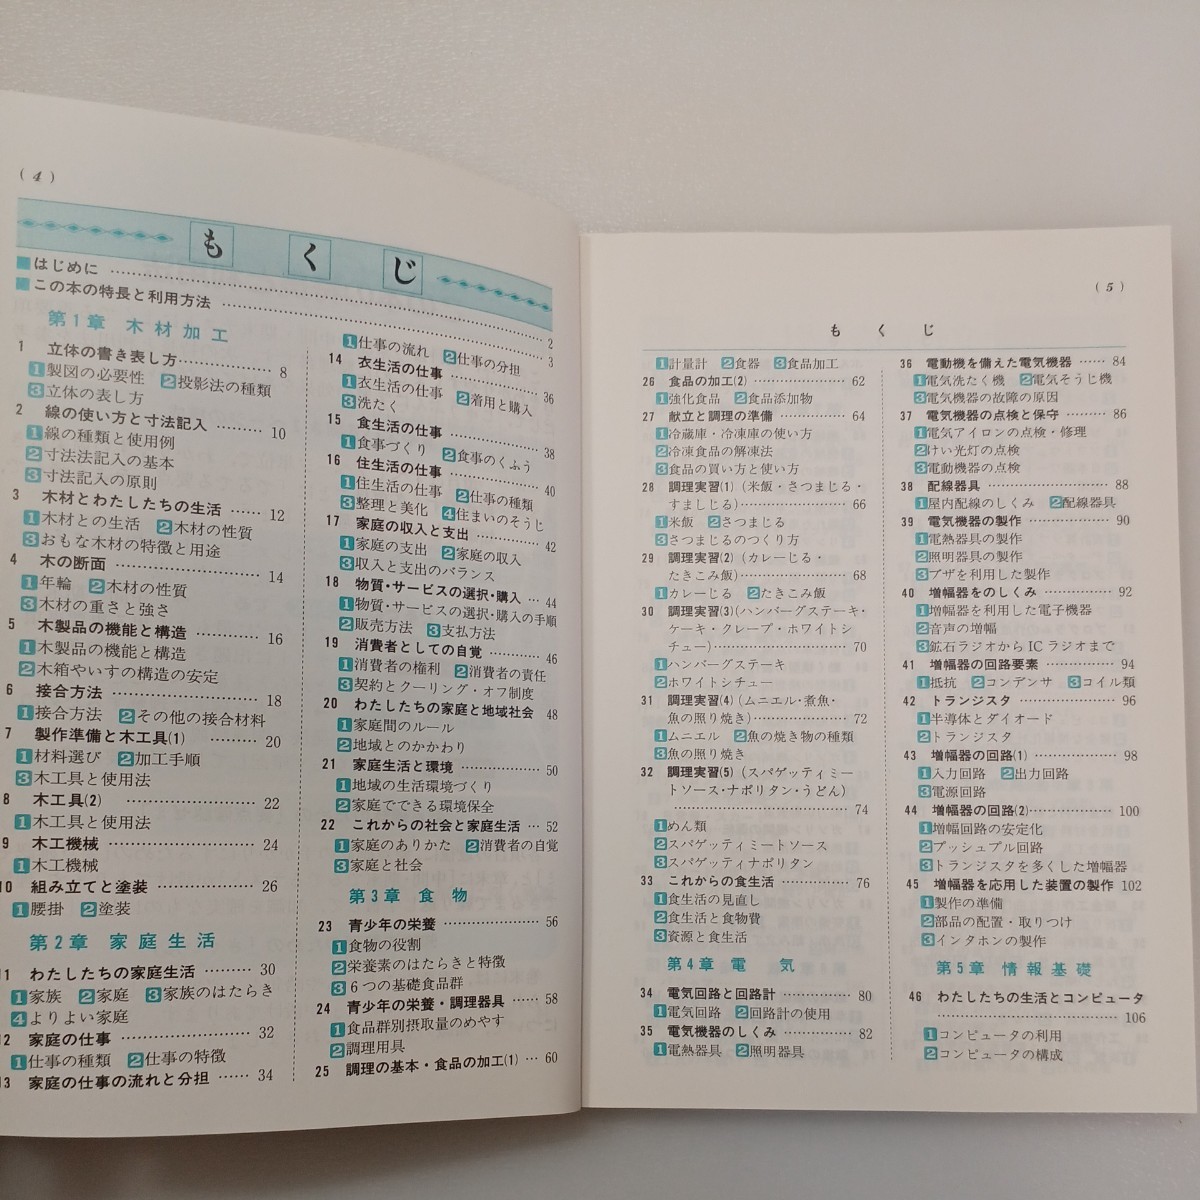 (4)
もくじ
■はじめに ………… 2
■この本の特長と利用方法 ………… 3
第1章 木材加工
1 立体の書き表し方………… 8
1製図の必要性 2投影法の種類
3立体の表し方
2 線の使い方と寸法記入 ……… 10
1線の種類と使用例
2寸法法記入の基本
3寸法記入の原則
3 木材とわたしたちの生活 …… 12
1木材との生活 2木材の性質
3おもな木材の特徴と用途
4 木の断面 ………… 14
1年輪 2木材の性質
3木材の重さと強さ
5 木製品の機能と構造 ………… 16
1木製品の機能と構造
2木箱やいすの構造の安定
6 接合方法 ………… 18
1接合方法 2その他の接合材料
7 製作準備と木工具(1) ……… 20
1材料選び 2加工手順
3木工具と使用法
8 木工具(2) ………… 22
1木工具と使用法
9 木工機械 ………… 24
1木工機械
10 組み立てと塗装 ………… 26
1腰掛 2塗装
第2章 家庭生活
11 わたしたちの家庭生活 ……… 30
1家族 2家庭 3家族のはたらき
4よりよい家庭
12 家庭の仕事 ………… 32
1仕事の種類 2仕事の特徴
13 家庭の仕事の流れと分担 …… 34
1仕事の流れ 2仕事の分担
14 衣生活の仕事 ………… 36
1衣生活の仕事 2着用と購入
3洗たく
15 食生活の仕事 ………… 38
1食事づくり 2食事のくふう
16 住生活の仕事 ………… 40
1住生活の仕事 2仕事の種類
3整理と美化 4住まいのそうじ
17 家庭の収入と支出 ……… 42
1家庭の支出 2家庭の収入
3収入と支出のバランス
18 物質・サービスの選択・購入 … 44
1物質・サービスの選択・購入の手順
2販売方法 3支払方法
19 消費者としての自覚 ……… 46
1消費者の権利 2消費者の責任
3契約とクーリング・オフ制度
20 わたしたちの家庭と地域社会 48
1家庭間のルール
2地域とのかかわり
21 家庭生活と環境 ………… 50
1地域の生活環境づくり
2家庭でできる環境保全
22 これからの社会と家庭生活 … 52
1家庭のありかた 2消費者の自覚
3家庭と社会
第3章 食物
23 青少年の栄養 ………… 56
1食物の役割
2栄養素のはたらきと特徴
3６つの基礎食品群
24 青少年の栄養・調理器具 …… 58
1食品群別摂取量のめやす
2調理用具
25 調理の基本・食品の加工(1) … 60
(5)
もくじ
1計量計 2食器 3食品加工
26 食品の加工(2) ………… 62
1強化食品 2食品添加物
27 献立と調理の準備 ………… 64
1冷蔵庫・冷凍庫の使い方
2冷凍食品の解凍法
3食品の買い方と使い方
28 調理実習(1) (米飯・さつまじる・
すましじる) ………… 66
1米飯 2さつまじる
3さつまじるのつくり方
29 調理実習(2) (カレーじる・
たきこみ飯) ………… 68
1カレーじる 2たきこみ飯
30 調理実習(3) (ハンバーグステーキ・
ケーキ・クレープ・ホワイトシ
チュー) ………… 70
1ハンバーグステーキ
2ホワイトシチュー
31 調理実習(4) (ムニエル・煮魚・
魚の照り焼き) ………… 72
1ムニエル 2魚の焼き物の種類
3魚の照り焼き
32 調理実習(5) (スパゲッティミー
トソース・ナポリタン・うどん)
………… 74
1めん類
2スパゲッティミートソース
3スパゲッティナポリタン
33 これからの食生活 ………… 76
1食生活の見直し
2食生活と食物費
3資源と食生活
第4章 電気
34 電気回路と回路計 ………… 80
1電気回路 2回路計の使用
35 電気機器のしくみ ………… 82
1電熱器具 2照明器具
36 電動機を備えた電気機器 …… 84
1電気洗たく機 2電気そうじ機
3電気機器の故障の原因
37 電気機器の点検と保守 ……… 86
1電気アイロンの点検・修理
2けい光灯の点検
3電動機器の点検
38 配線器具 ………… 88
1屋内配線のしくみ 2配線器具
39 電気機器の製作 ………… 90
1電熱器具の製作
2照明器具の製作
3ブザを利用した製作
40 増幅器をのしくみ ………… 92
1増幅器を利用した電子機器
2音声の増幅
3鉱石ラジオから IC ラジオまで
41 増幅器の回路要素 ………… 94
1抵抗 2コンデンサ 3コイル類
42 トランジスタ ………… 96
1半導体とダイオード
2トランジスタ
43 増幅器の回路(1) ………… 98
1入力回路 2出力回路
3電源回路
44 増幅器の回路(2)………… 100
1増幅回路の安定化
2プッシュプル回路
3トランジスタを多くした増幅器
45 増幅器を応用した装置の製作 102
1製作の準備
2部品の配置・取りつけ
3インタホンの製作
第5章 情報基礎
46 わたしたちの生活とコンピュータ
………… 106
1コンピュータの利用
2コンピュータの構成